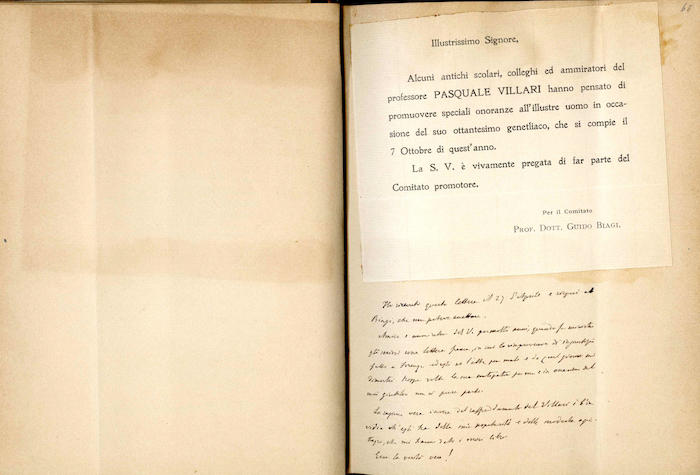 68
Illustrissimo Signore,
Alcuni antichi scolari, colleghi ed ammiratori del
professore PASQUALE VILLARI hanno pensato di
promuovere speciali onoranze all'illustre uomo in occa-
sione del suo ottantesimo genetliaco, che si compie il
7 Ottobre di quest'anno.
La S. V. è vivamente pregata di far parte del
Comitato promotore.
Per il Comitato
PROF. DOTT. GUIDO BIAGI.
Ho ricevuto questa lettera il 27 d'Aprile e risposi al
Biagi, che non potevo accettare.
Amico e ammiratore del V. per molti anni, quando fu ministro
gli scrissi una lettera franca, in cui lo rimproveravo di
fatte a Firenze. ebbe per male e da quel giorno mi
dimostrò troppe volte la sua antipatia perché
mio giudizio non vi prese parte.
La ragione vera invece del raffreddamento del Villari è l'in-
vidia ch'egli ha della mia popolarità e della modesta agia-
tezza, che mi hanno dato i miei libri.
Ecco la verità vera!